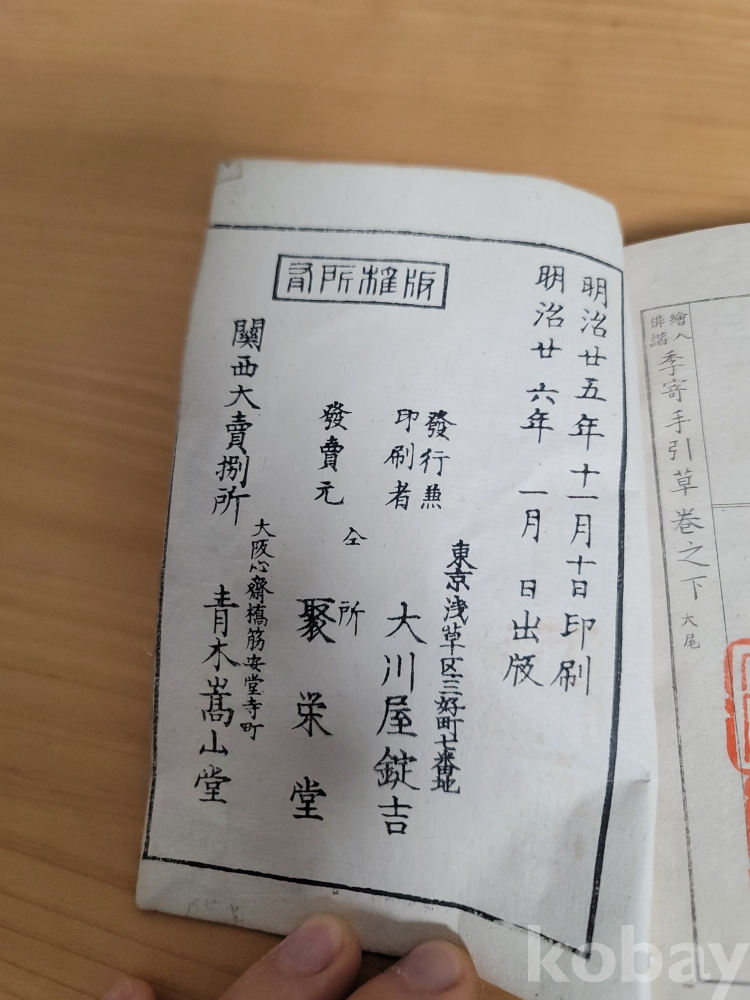 繪入
俳諧
季寄手引草卷之下 大尾
明治廿五年十一月十日印刷
明治廿六年 一月 日出版
版權所有
東京浅草区三好町七番地
發行兼
印刷者 大川屋錠吉
仝 所
發賣元 聚栄堂
大阪心齋橋筋安堂寺町
關西大賣捌所 青木嵩山堂
kobay